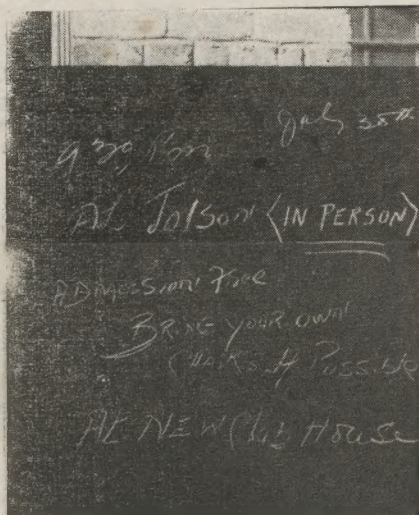 July 30th
9 30 Pm
AL Jolson <IN PERSON>
ADMISSION Free
BRING YOUR OWN
CHAIRS If Possible
At NEW Club House